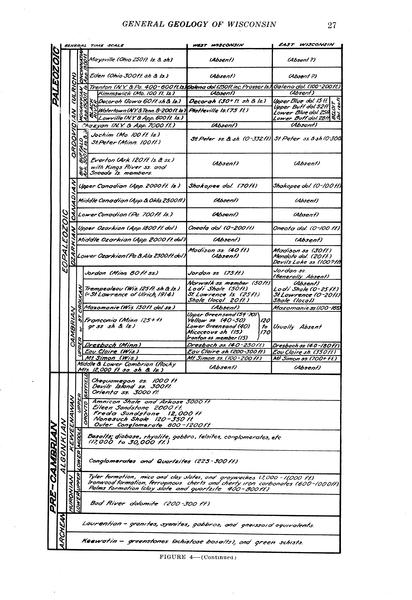 GENERAL GEOLOGY OF WISCONSIN 27
GENERAL TIME SCALE WEST WISCONSIN EAST WISCONSIN
PALEOZOIC
Maysville (Ohio 250 ft ls & sh) (Absent) (Absent ?)
Eden (Ohio 300 ft sh & ls) (Absent) (Absent ?)
Trenton (N.Y. & Pa. 400-600 ft ls) Galena dol (250 ft inc. Prosser ls) Galena dol. (100-200 ft)
Kimmswick (Mo. 100 ft ls) (Absent) (Absent)
Decorah (Iowa 60 ft sh & ls) Decorah (30+ ft sh & ls) Upper Blue dol 15 ft
Upper Buff dol
Platteville ls (75 ft) Lower Blue dol
Lowville (N.Y. & App. 600 ft ls) Lower Buff dol
Chazyan (N.Y. & App. 7000 ft) (Absent) (Absent)
Joachim (Mo 100 ft ls)
St Peter (Minn 100 ft) St Peter ss & sh (0-332 ft) St Peter ss &sh
Everton (Ark 120 ft ls & ss)
with Kings River ss. and
Sneads ls members (Absent) (Absent)
Upper Canadian (App. 2000 ft ls) Shakopee dol. (70 ft) Shakopee dol (0-100 ft)
Middle Canadian (App & Okla 2500 ft) (Absent) (Absent)
Lower Canadian (Pa 700 ft ls) (Absent) (Absent)
Upper Ozarkian (App 1800 ft dol) Oneota dol (0-200 ft) Oneota dol (0-100 ft)
Middle Ozarkian (App. 2000 ft dol) (Absent) (Absent)
Lower Ozarkian (Pa & Ala 2300 ft dol) Madison ss (40 ft) Madison ss (30 ft)
Mendota dol (20 ft)
Devils Lake ss (100? ft)
Jordan (Minn 80 ft ss) Jordan ss (75 ft) Jordan ss
(Generally Absent)
Trempealeau (Wis. 125 ft sh & ls)
(= St Lawrence of Ulrich, 1914) Norwalk ss member (50 ft) (Absent)
Lodi Shale (30 ft) Lodi Shale (0-25 ft)
St Lawrence ls (25 ft) St Lawrence (0-20 ft)
Shale (local 20 ft) Shale (local)
Mazomanie (Wis 150 ft dol ss) (Absent) Mazomanie ss
Franconia (Minn 125 + ft
gr ss sh & ls) Upper Greensand
Yellow ss (40-50)
Lower Greensand (40)
Micaceous sh (15)
Ironton ss member (15) 120
to
170 Usually Absent
Dresbach (Minn) Dresbach ss (40-250 ft) Dresbach ss (40-180 ft)
Eau Claire (Wis) Eau Claire sh (200-300 ft) Eau Claire sh (350 ft)
Mt Simon (Wis) Mt Simon ss (100-200 ft) Mt Simon ss (700+ ft)
Middle & Lower Cambrian (Rocky
Mts. 12,000 ft ss. sh & ls) (Absent) (Absent)
EOPALEOZOIC
ORDOVICIAN
CANADIAN
OZARKIAN
CAMBRIAN
PRE-CAMBRIAN
ALGONKIAN
KEWEENAWAN
Chequamegon ss. 1000 ft
Devils Island ss. 300 ft.
Orienta ss. 3000 ft
Amnicon Shale and Arkose 5000 ft
Eileen Sandstone 2000 ft.
Freda Sandstone 12,000 ft
Nonesuch Shale 120-350 ft
Outer Conglomerate 800-1200 ft
Basalts, diabase, rhyolite, gabbro, felsites, conglomerates, etc
(17,000 to 30,000 ft.)
Conglomerates and Quartzites (225-300 ft)
HURONIAN
Tyler formation, mica and clay slates, and graywackes
Ironwood formation, ferruginous cherts and cherty iron carbonates (600-1000 ft)
Palms formation (clay slate and quartzite 400-800 ft)
Bad River dolomite (200-300 ft)
ARCHEAN
Laurentian - granites, syenites, gabbros, and gneissoid equivalents.
Keewatin - greenstones (schistose basalts), and green schists.
FIGURE 4—(Continued)